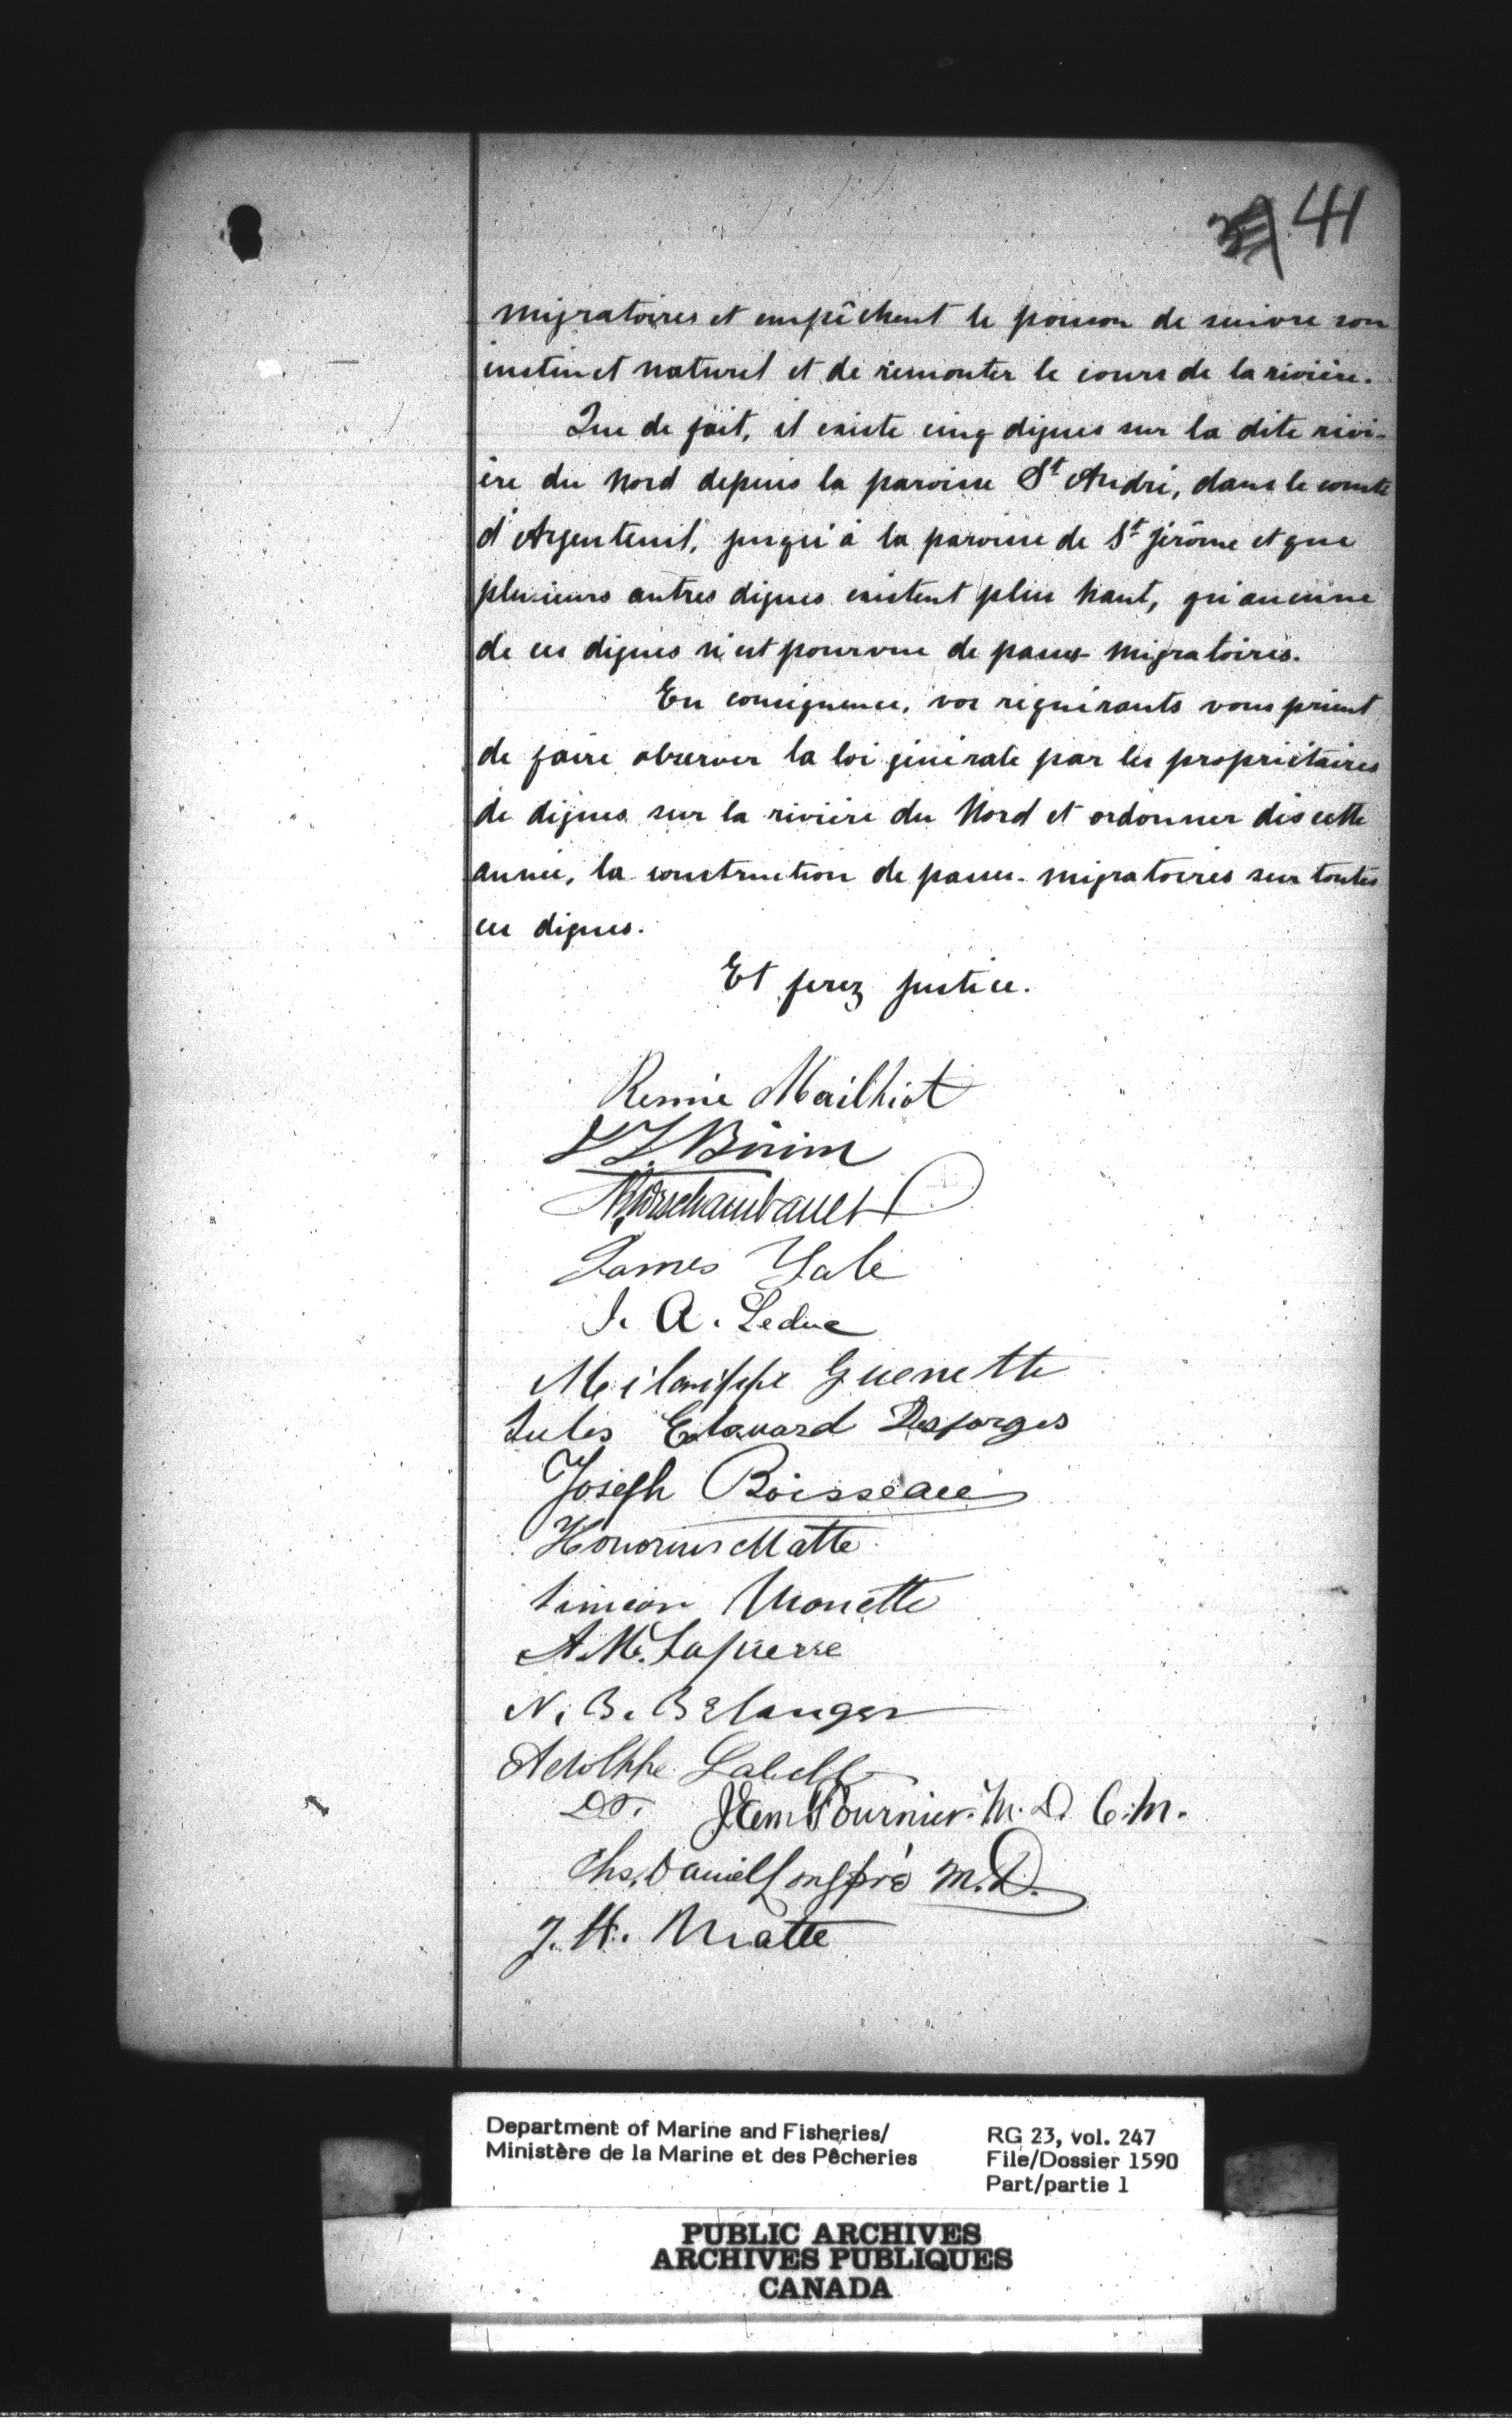 41
migratoires et empêchent le poisson de suivre son
instinct naturel et de remonter le cours de la rivière.
Que de fait, il existe cinq digues sur la dite rivi-
ère du Nord depuis la paroisse St André, dans le comté
d'Argenteuil, jusqu'à la paroisse de St Jérôme et que
plusieurs autres digues existent plus haut, qu'aucune
de ces digues n'est pourvue de passes-migratoires.
En conséquence, vos requérants vous prient
de faire observer la loi générale par les propriétaires
de digues sur la rivière du Nord et ordonner dès cette
année, la construction de passes-migratoires sur toutes
ces digues.
Et ferez justice.
Mailhiot
Archambault
James Yale
J. A. Leduc
Guenette
Jules Edouard Desforges
Joseph Boisseau
Honorius Matte
Siméon Monette
A. M. Lapierre
N. B. Belanger
Adolphe Labelle
Dr. Fournier M. D. C. M.
Chs. Daniel Longpré M.D.
J. H. Matte
Department of Marine and Fisheries/
Ministère de la Marine et des Pêcheries
RG 23, vol. 247
File/Dossier 1590
Part/partie 1
PUBLIC ARCHIVES
ARCHIVES PUBLIQUES
CANADA